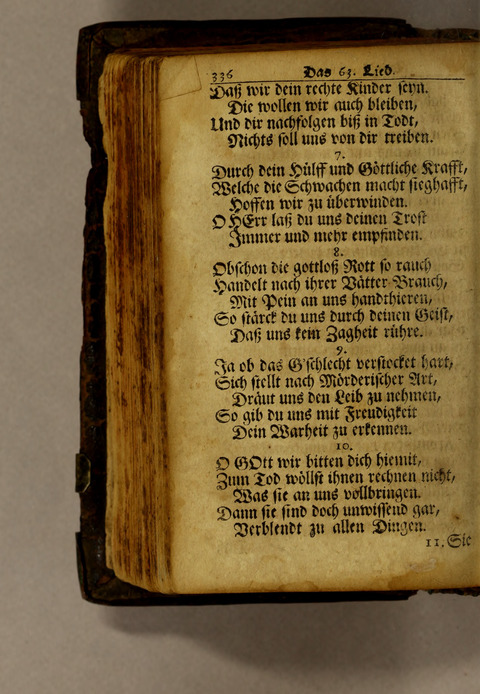 336 Das 63. Lied.
Daß wir dein rechte Kinder seyn.
Die wollen wir auch bleiben,
Und dir nachfolgen biß in Todt,
Nichts soll uns von dir treiben.
7.
Durch dein Hülff und Göttliche Krafft,
Welche die Schwachen macht sieghafft,
Hoffen wir zu überwinden.
O HErr laß du uns deinen Trost
Immer und mehr empfinden.
8.
Obschon die gottloß Rott so rauch
Handelt nach ihrer Vätter Brauch,
Mit Pein an uns handthieren,
So stärck du uns durch deinen Geist,
Daß uns kein Zagheit rühre.
9.
Ja ob das G'schlecht verstocket hart,
Sich stellt nach Mörderischer Art,
Dräut uns den Leib zu nehmen,
So gib du uns mit Freudigkeit
Dein Warheit zu erkennen.
10.
O GOtt wir bitten dich hiemit,
Zum Tod wöllst ihnen rechnen nicht,
Was sie an uns vollbringen.
Dann sie sind doch unwissend gar,
Verblendt zu allen Dingen.
11. Sie